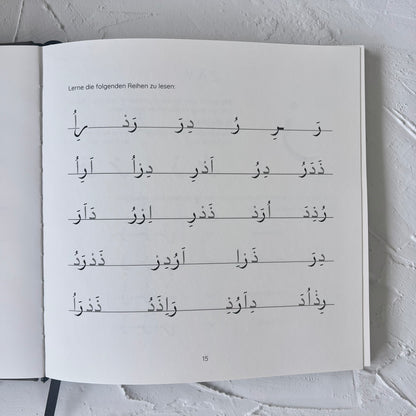 Lerne die folgenden Reihen zu lesen:
رَ رِ رُ دِرَ رَذ رِاُ
ذَدَرُ دِرُ اَذرِ دِرَاُ اَرِاُ
رُذِدَ اُرَذ ذَدرِ اِرَرُ دَاَرَ
دِرَ ذَرَاِ اَرُدِر ذَدرَدُ
رِذاُدَ دِاَرُذِ رَاِذَدُ ذَدرَاُ
15